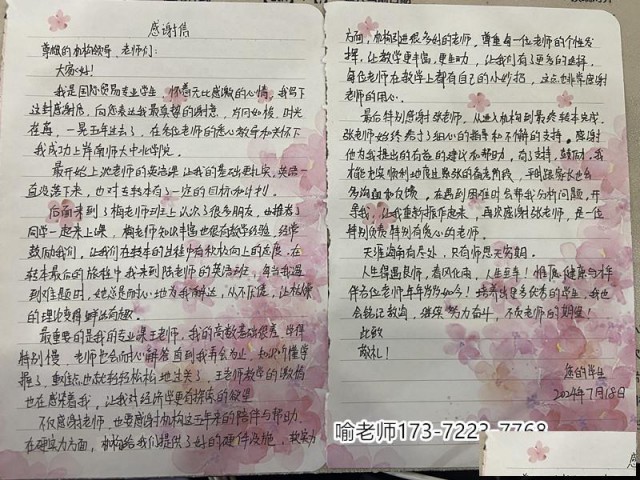 感谢信
尊敬的机构领导、老师们:
大家好!
我是国际贸易专业学生,怀着无比感激的心情,我写下
这封感谢信,向您表达我最真挚的谢意。岁月如梭,时光
在再,一晃五年过去了,在各位老师的悉心教导和关怀下
我成功上岸南师大中北学院。
最开始上沈老师的英语课,让我的基础更扎实,英语一
直没落下来,也对专转本有了一次的目标和计划。
后面来到了梅老师班上认识了很多朋友,也推荐了
同学一起来上课,梅老师知识丰富也很有教学经验,经常
鼓励我们,让我们在转本的过程中有积极向上的态度,在
转本最后的旅程中我来到陆老师的英语班,每当我遇
到难题时,她总是耐心地为我解达,从不厌倦,让枯燥
的理论变得鲜活有趣。
最重要的是我的专业课王老师,我的高数基础很差,学得
特别慢,老师也会耐心解答直到我弄会为止,知识听懂掌
握了,重难点也就轻轻松松地过关了,王老师教学的激情
也在感染着我,让我对经济学更有探索的欲望
不仅感谢老师,也要感谢机构这三年来的陪伴与帮助
在硬实力方面,机构给我们提供了好的硬件设施,软实力
方面,机构引进很多好的老师,尊重每一位老师的个性发
挥,让教学更丰富,更生动,让我们有了更多的选择,
每位老师在教学上都有自己的小妙招,这点也非常感谢
老师的用心。
最后特别感谢张老师,从进入机构到最终转本完成,
张老师始终给予了细心的指导和不懈的支持。感谢
他为我提出的有益的建议和帮助,有了支持,鼓励,我
才能充实顺利地度过紧张的备考阶段,平时跟家长也会
多沟通和反馈,在遇到困难时会帮我分析问题,开
导我,让我重新振作起来,再次感谢张老师,是一位
特别负责特别有爱心的老师。
天涯海角有尽处,只有师恩无穷期。
人生得遇良师,春风化雨,人生至幸!惟愿健康与
伴各位老师年年岁岁如今!培养出更多优秀的学生,我也
会铭记教诲,继续努力奋斗,不负老师的期望!
此致
敬礼!
您的学生
2024年7月18日
喻老师173-7223-7768